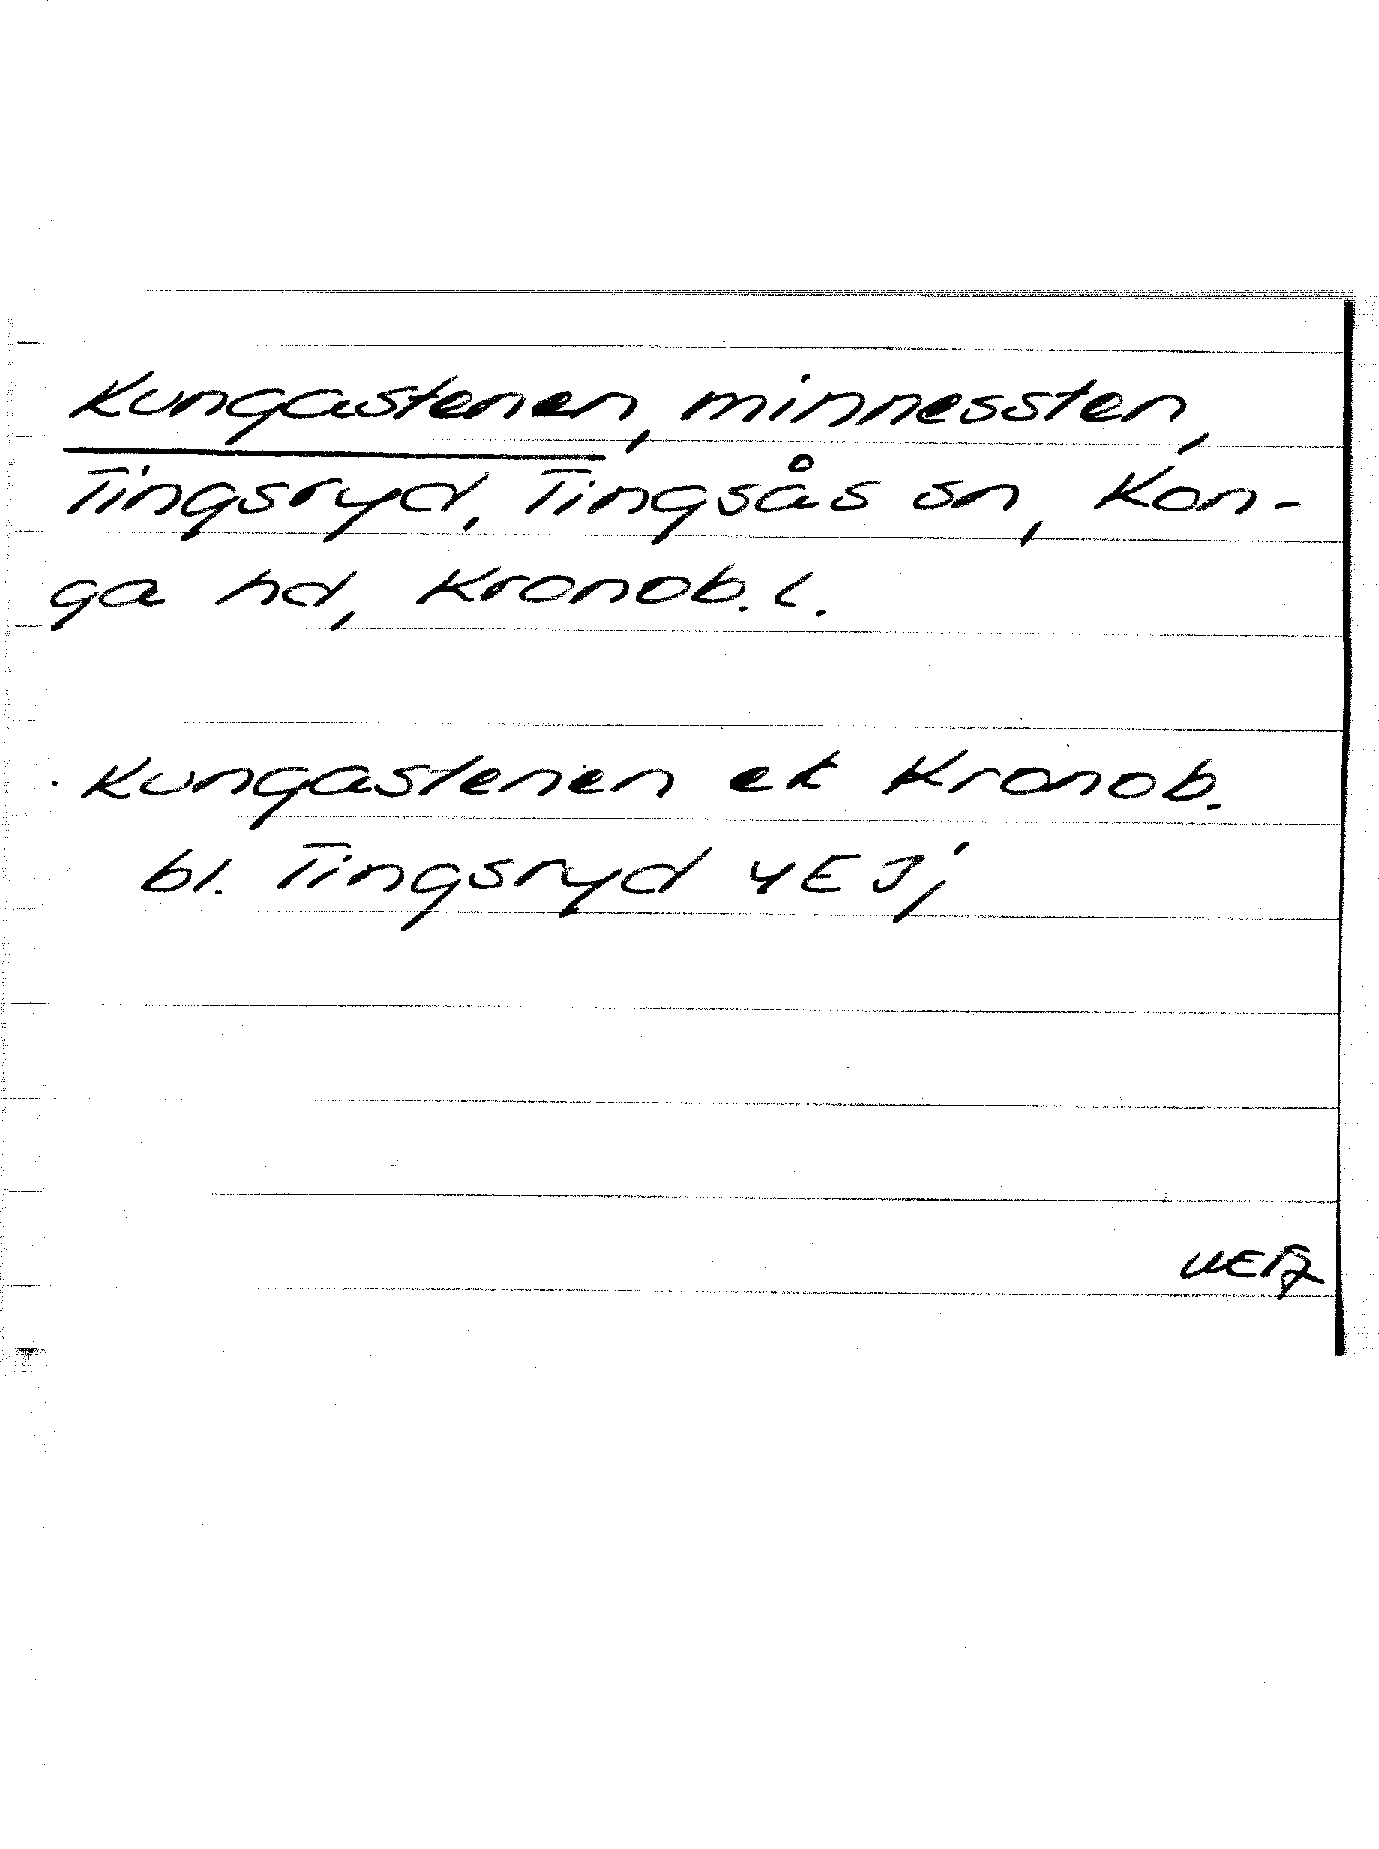 Kungastenen, minnessten,
Tingsryd, Tingsås sn, Kon-
ga hd, Kronob. l.
Kungastenen ek Kronob.
bl. Tingsryd 4E J;